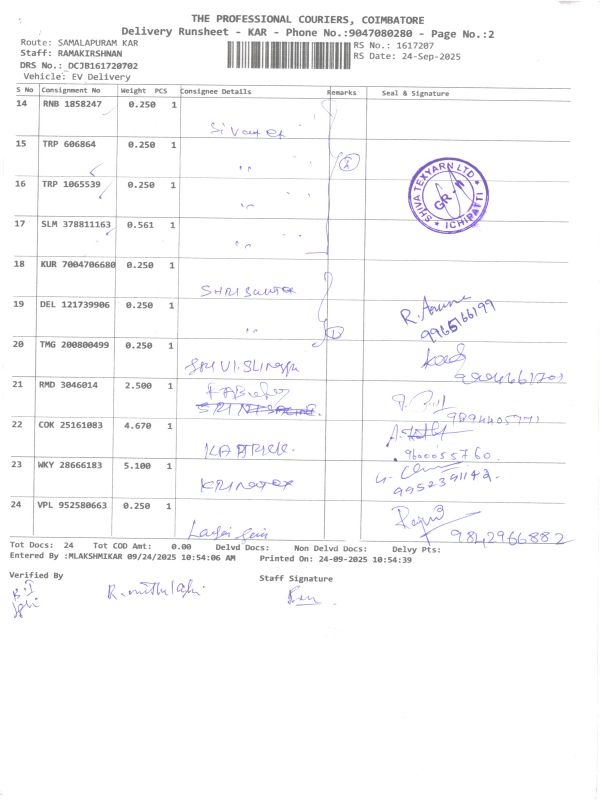 THE PROFESSIONAL COURIERS, COIMBATORE
Delivery Runsheet - KAR - Phone No.:9047080280 - Page No.:2
Route: SAMALAPURAM KAR
Staff: RAMAKIRSHNAN
RS No.: 1617207
DRS No.: DCJB161720702
RS Date: 24-Sep-2025
Vehicle: EV Delivery
S No Consignment No Weight PCS Consignee Details Remarks Seal & Signature
14 RNB 1858247 0.250 1
15 TRP 606864 0.250 1 "
16 TRP 1065539 0.250 1 "
SHIVA TEXYARN LTD GR-II ICHIPATTI
17 SLM 378811163 0.561 1 "
18 KUR 7004706680 0.250 1
19 DEL 121739906 0.250 1 "
9965166199
20 TMG 200800499 0.250 1
21 RMD 3046014 2.500 1
9894405771
22 COK 25161083 4.670 1
9600055760
23 WKY 28666183 5.100 1
9952391142
24 VPL 952580663 0.250 1
9842966882
Tot Docs: 24 Tot COD Amt: 0.00 Delvd Docs: Non Delvd Docs: Delvy Pts:
Entered By :MLAKSHMIKAR 09/24/2025 10:54:06 AM Printed On: 24-09-2025 10:54:39
Verified By Staff Signature